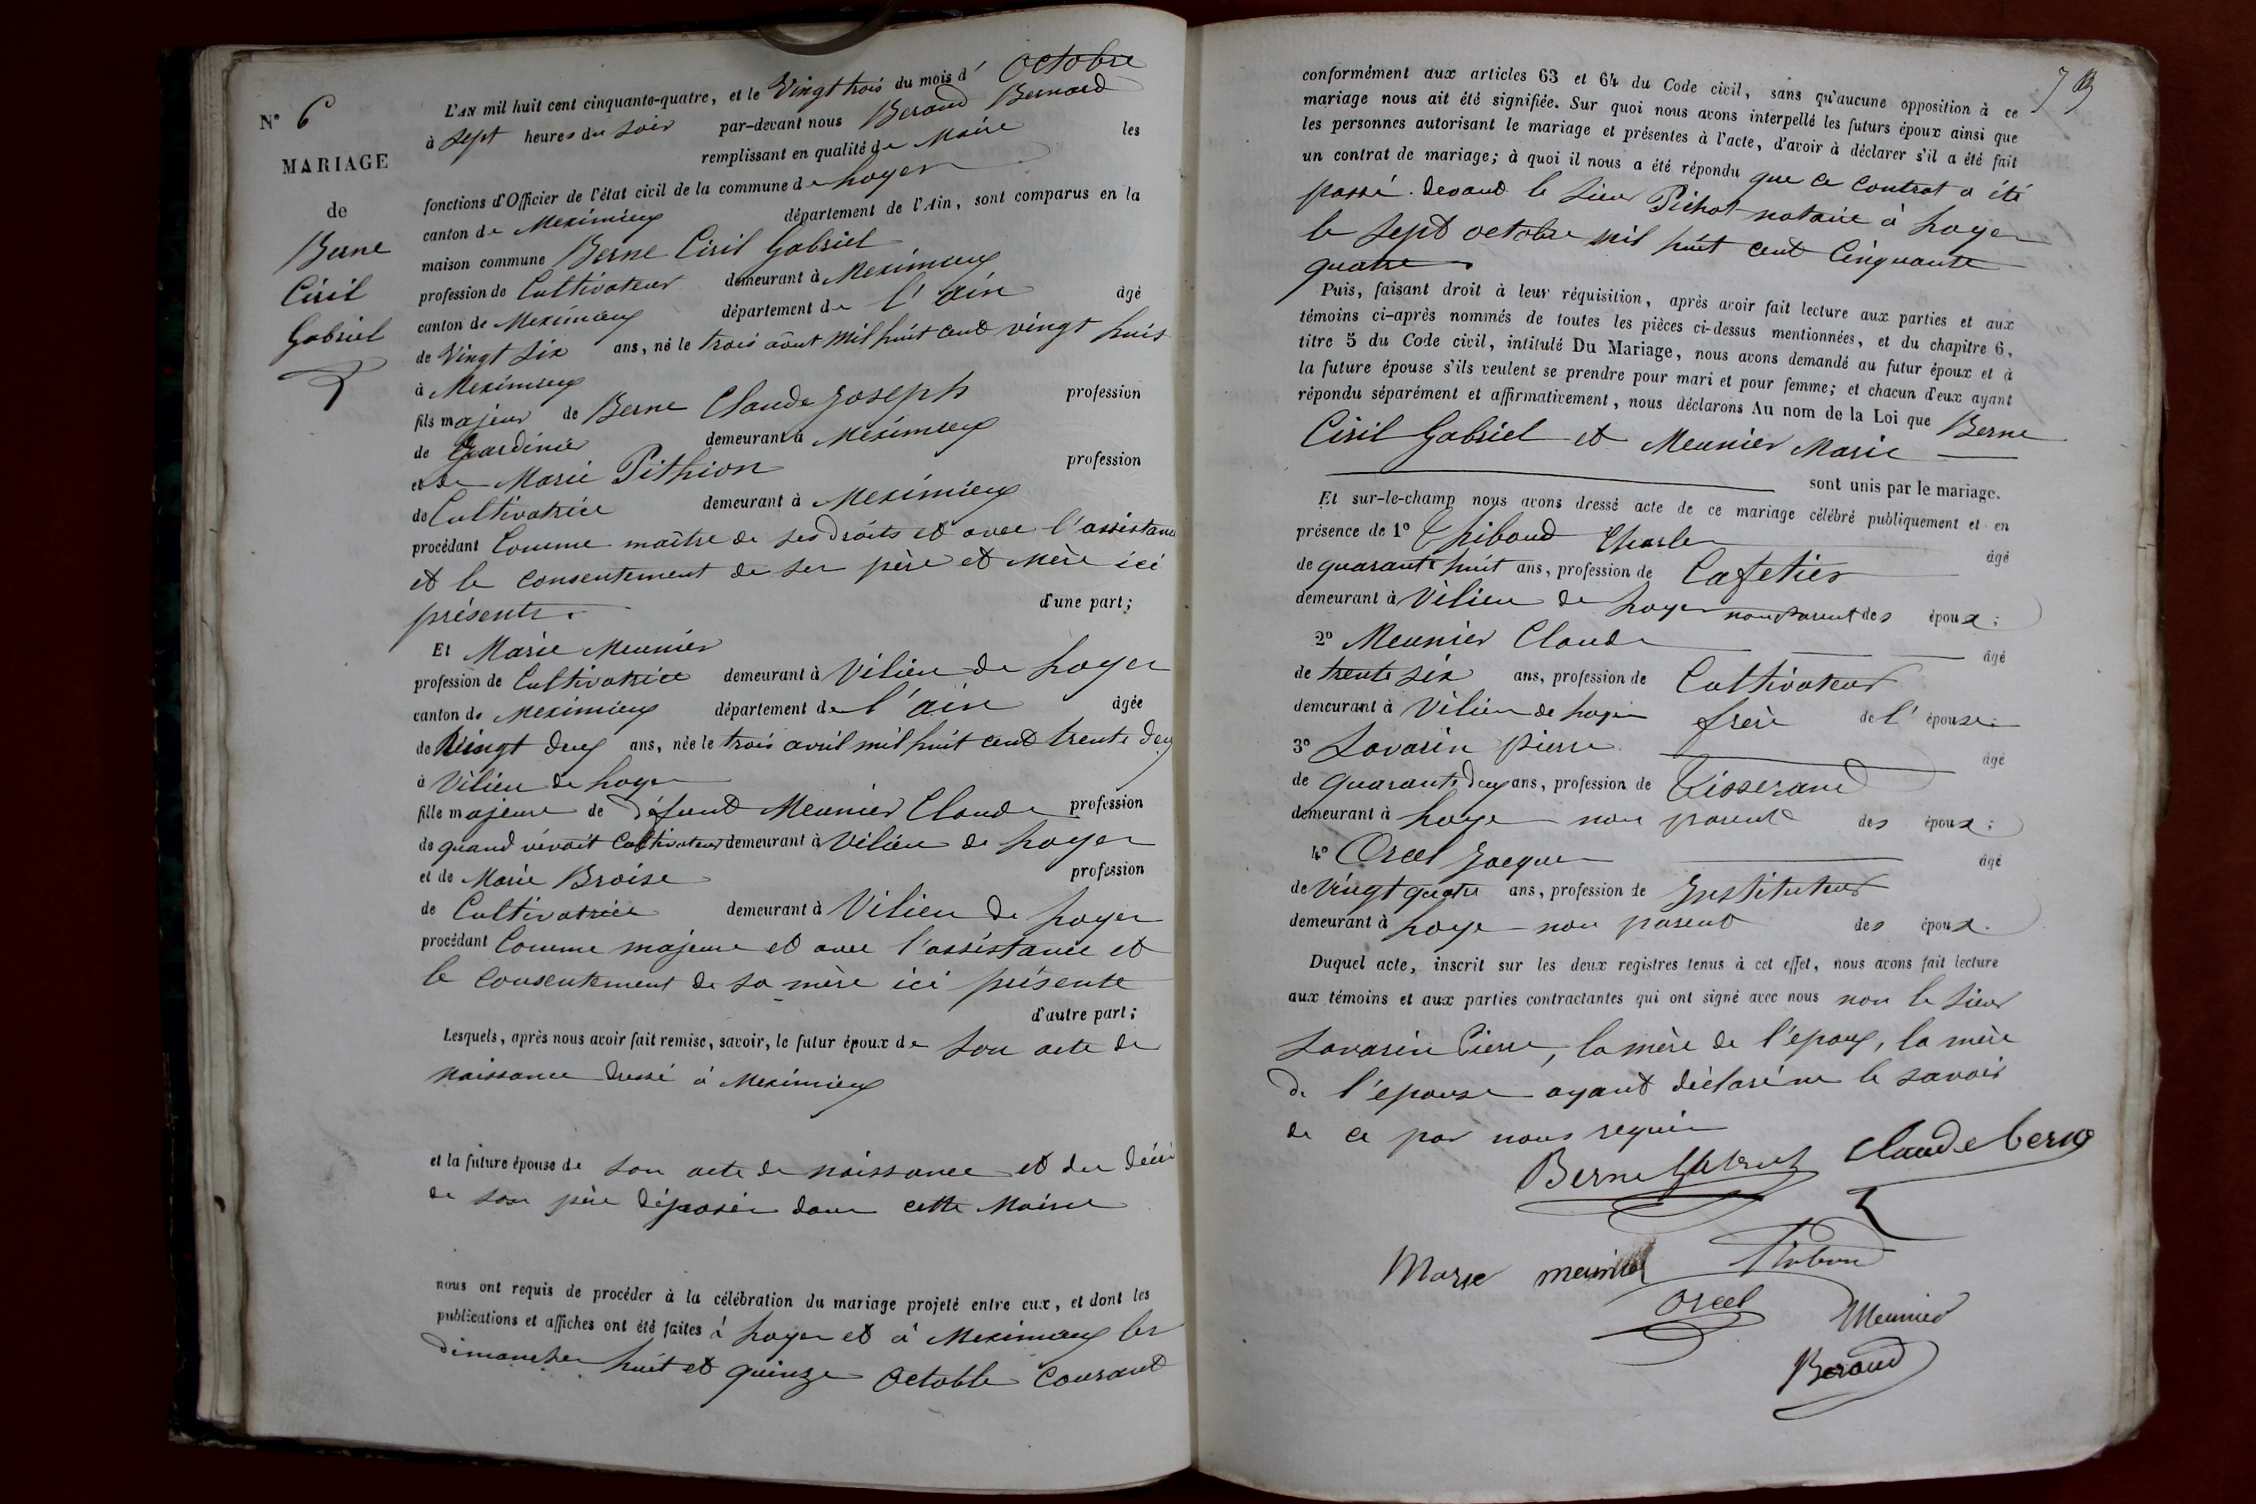 N° 6
MARIAGE
de
Berne
Ciril
Gabriel
L'AN mil huit cent cinquante-quatre, et le Vingt trois du mois d' Octobre
à Sept heures du Soir par-devant nous Beraud Bernard
remplissant en qualité de Maire les
fonctions d'Officier de l'état civil de la commune de Loyes
canton de Meximieux département de l'Ain, sont comparus en la
maison commune Berne Ciril Gabriel
profession de Cultivateur demeurant à Meximieux
canton de Meximieux département de l'ain âgé
de Vingt Six ans, né le trois aôut mil huit cent vingt huit
à Meximieux
fils majeur de Berne Claude Joseph profession
de Jardinier demeurant à Meximieux
et de Marie Pithion profession
de Cultivatrice demeurant à Meximieux
procédant Comme maître de ses droits et avec l'assistance
et le consentement de ses père et Mère ici
présents. d'une part;
Et Marie Meunier
profession de Cultivatrice demeurant à Vilieu de Loyes
canton de Meximieux département de l'ain âgée
de Vingt deux ans, née le trois avril mil huit cent trente deux
à Vilieu de Loyes
fille majeure de défunt Meunier Claude profession
de quand vivait Cultivateur demeurant à Vilieu de Loyes
et de Marie Broise profession
de Cultivatrice demeurant à Vilieu de Loyes
procédant Comme majeure et avec l'assistance et
le consentement de sa mère ici présente
d'autre part;
Lesquels, après nous avoir fait remise, savoir, le futur époux de Son acte de
naissance dressé à Meximieux
et la future épouse de son acte de naissance et du décès
de son père déposés dans cette Mairie
nous ont requis de procéder à la célébration du mariage projeté entre eux, et dont les
publications et affiches ont été faites à Loyes et à Meximieux les
dimanches huit et quinze Octobre Courant
conformément aux articles 63 et 64 du Code civil, sans qu'aucune opposition à ce
mariage nous ait été signifiée. Sur quoi nous avons interpellé les futurs époux ainsi que
les personnes autorisant le mariage et présentes à l'acte, d'avoir à déclarer s'il a été fait
un contrat de mariage; à quoi il nous a été répondu que ce contrat a été
passé devant le sieur Pichot notaire à Loyes
le Sept octobre mil huit cent Cinquante
quatre.
Puis, faisant droit à leur réquisition, après avoir fait lecture aux parties et aux
témoins ci-après nommés de toutes les pièces ci-dessus mentionnées, et du chapitre 6,
titre 5 du Code civil, intitulé Du Mariage, nous avons demandé au futur époux et à
la future épouse s'ils veulent se prendre pour mari et pour femme; et chacun d'eux ayant
répondu séparément et affirmativement, nous déclarons Au nom de la Loi que Berne
Ciril Gabriel et Meunier Marie
sont unis par le mariage.
Et sur-le-champ nous avons dressé acte de ce mariage célébré publiquement et en
présence de 1° Thibaud Charles âgé
de quarante huit ans, profession de Cafetier
demeurant à Vilieu de Loyes non parent des époux;
2° Meunier Claude âgé
de trente six ans, profession de Cultivateur
demeurant à Vilieu de Loyes frère de l'épouse;
3° Savarin Pierre âgé
de quarante deux ans, profession de Tisserand
demeurant à Loyes non parent des époux;
4° Orcel Jacques âgé
de vingt quatre ans, profession de Instituteur
demeurant à Loyes non parent des époux.
Duquel acte, inscrit sur les deux registres tenus à cet effet, nous avons fait lecture
aux témoins et aux parties contractantes qui ont signé avec nous non le Sieur
Savarin Pierre, la mère de l'époux, la mère
de l'épouse ayant déclaré ne le savoir
de ce par nous requis
Berne Gabriel Claude berne
Marie meunier Thibaud
Orcel Meunier
Beraud